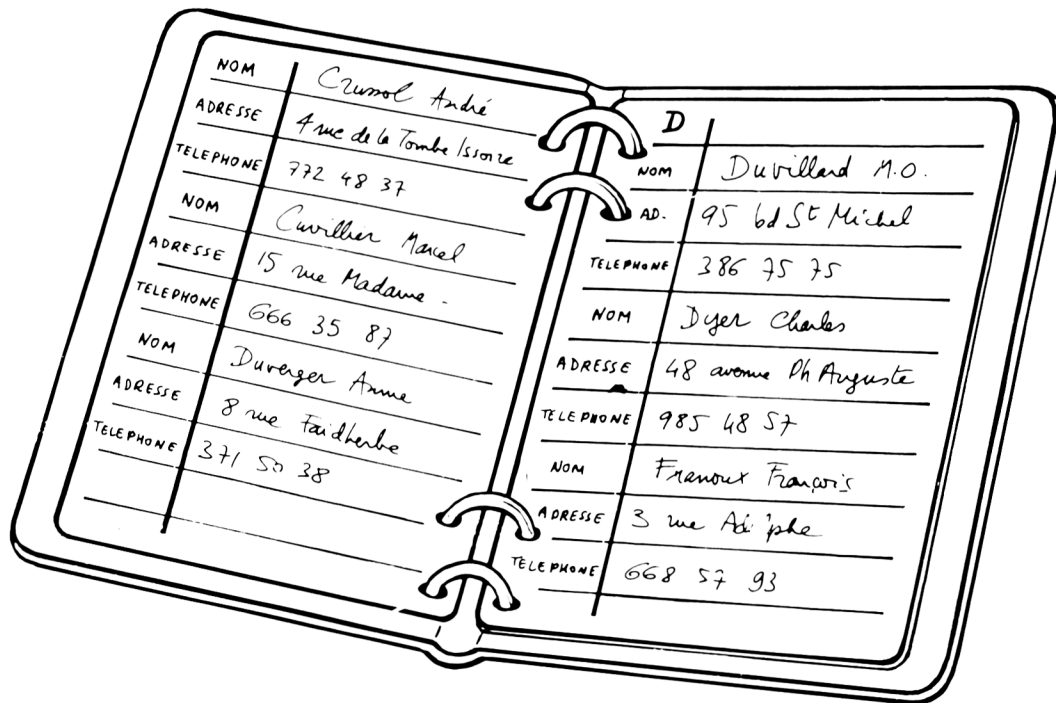 NOM Crussol André
ADRESSE 4 rue de la Tombe Issoire
TELEPHONE 772 48 37
NOM Cuvillier Marcel
ADRESSE 15 rue Madame -
TELEPHONE 666 35 87
NOM Duverger Anne
ADRESSE 8 rue Faidherbe
TELEPHONE 371 50 38
D
NOM Duvillard M.O.
AD. 95 bd St Michel
TELEPHONE 386 75 75
NOM Dyer Charles
ADRESSE 48 avenue Ph Auguste
TELEPHONE 985 48 57
NOM François
ADRESSE 3 rue
TELEPHONE 668 57 93